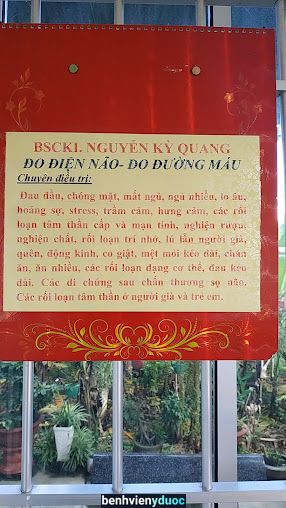 BSCKI. NGUYỄN KỲ QUANG
ĐO ĐIỆN NÃO- ĐO ĐƯỜNG MÁU
Chuyên điều trị:
Đau đầu, chóng mặt, mất ngủ, ngủ nhiều, lo âu,
hoảng sợ, stress, trầm cảm, hưng cảm, các rối
loạn tâm thần cấp và mạn tính, nghiện rượu,
nghiện chất, rối loạn trí nhớ, lú lẫn người già,
quên, động kinh, co giật, mệt mỏi kéo dài, chán
ăn, ăn nhiều, các rối loạn dạng cơ thể, đau kéo
dài. Các di chứng sau chấn thương sọ não.
Các rối loạn tâm thần ở người già và trẻ em.
benhvienyduoc